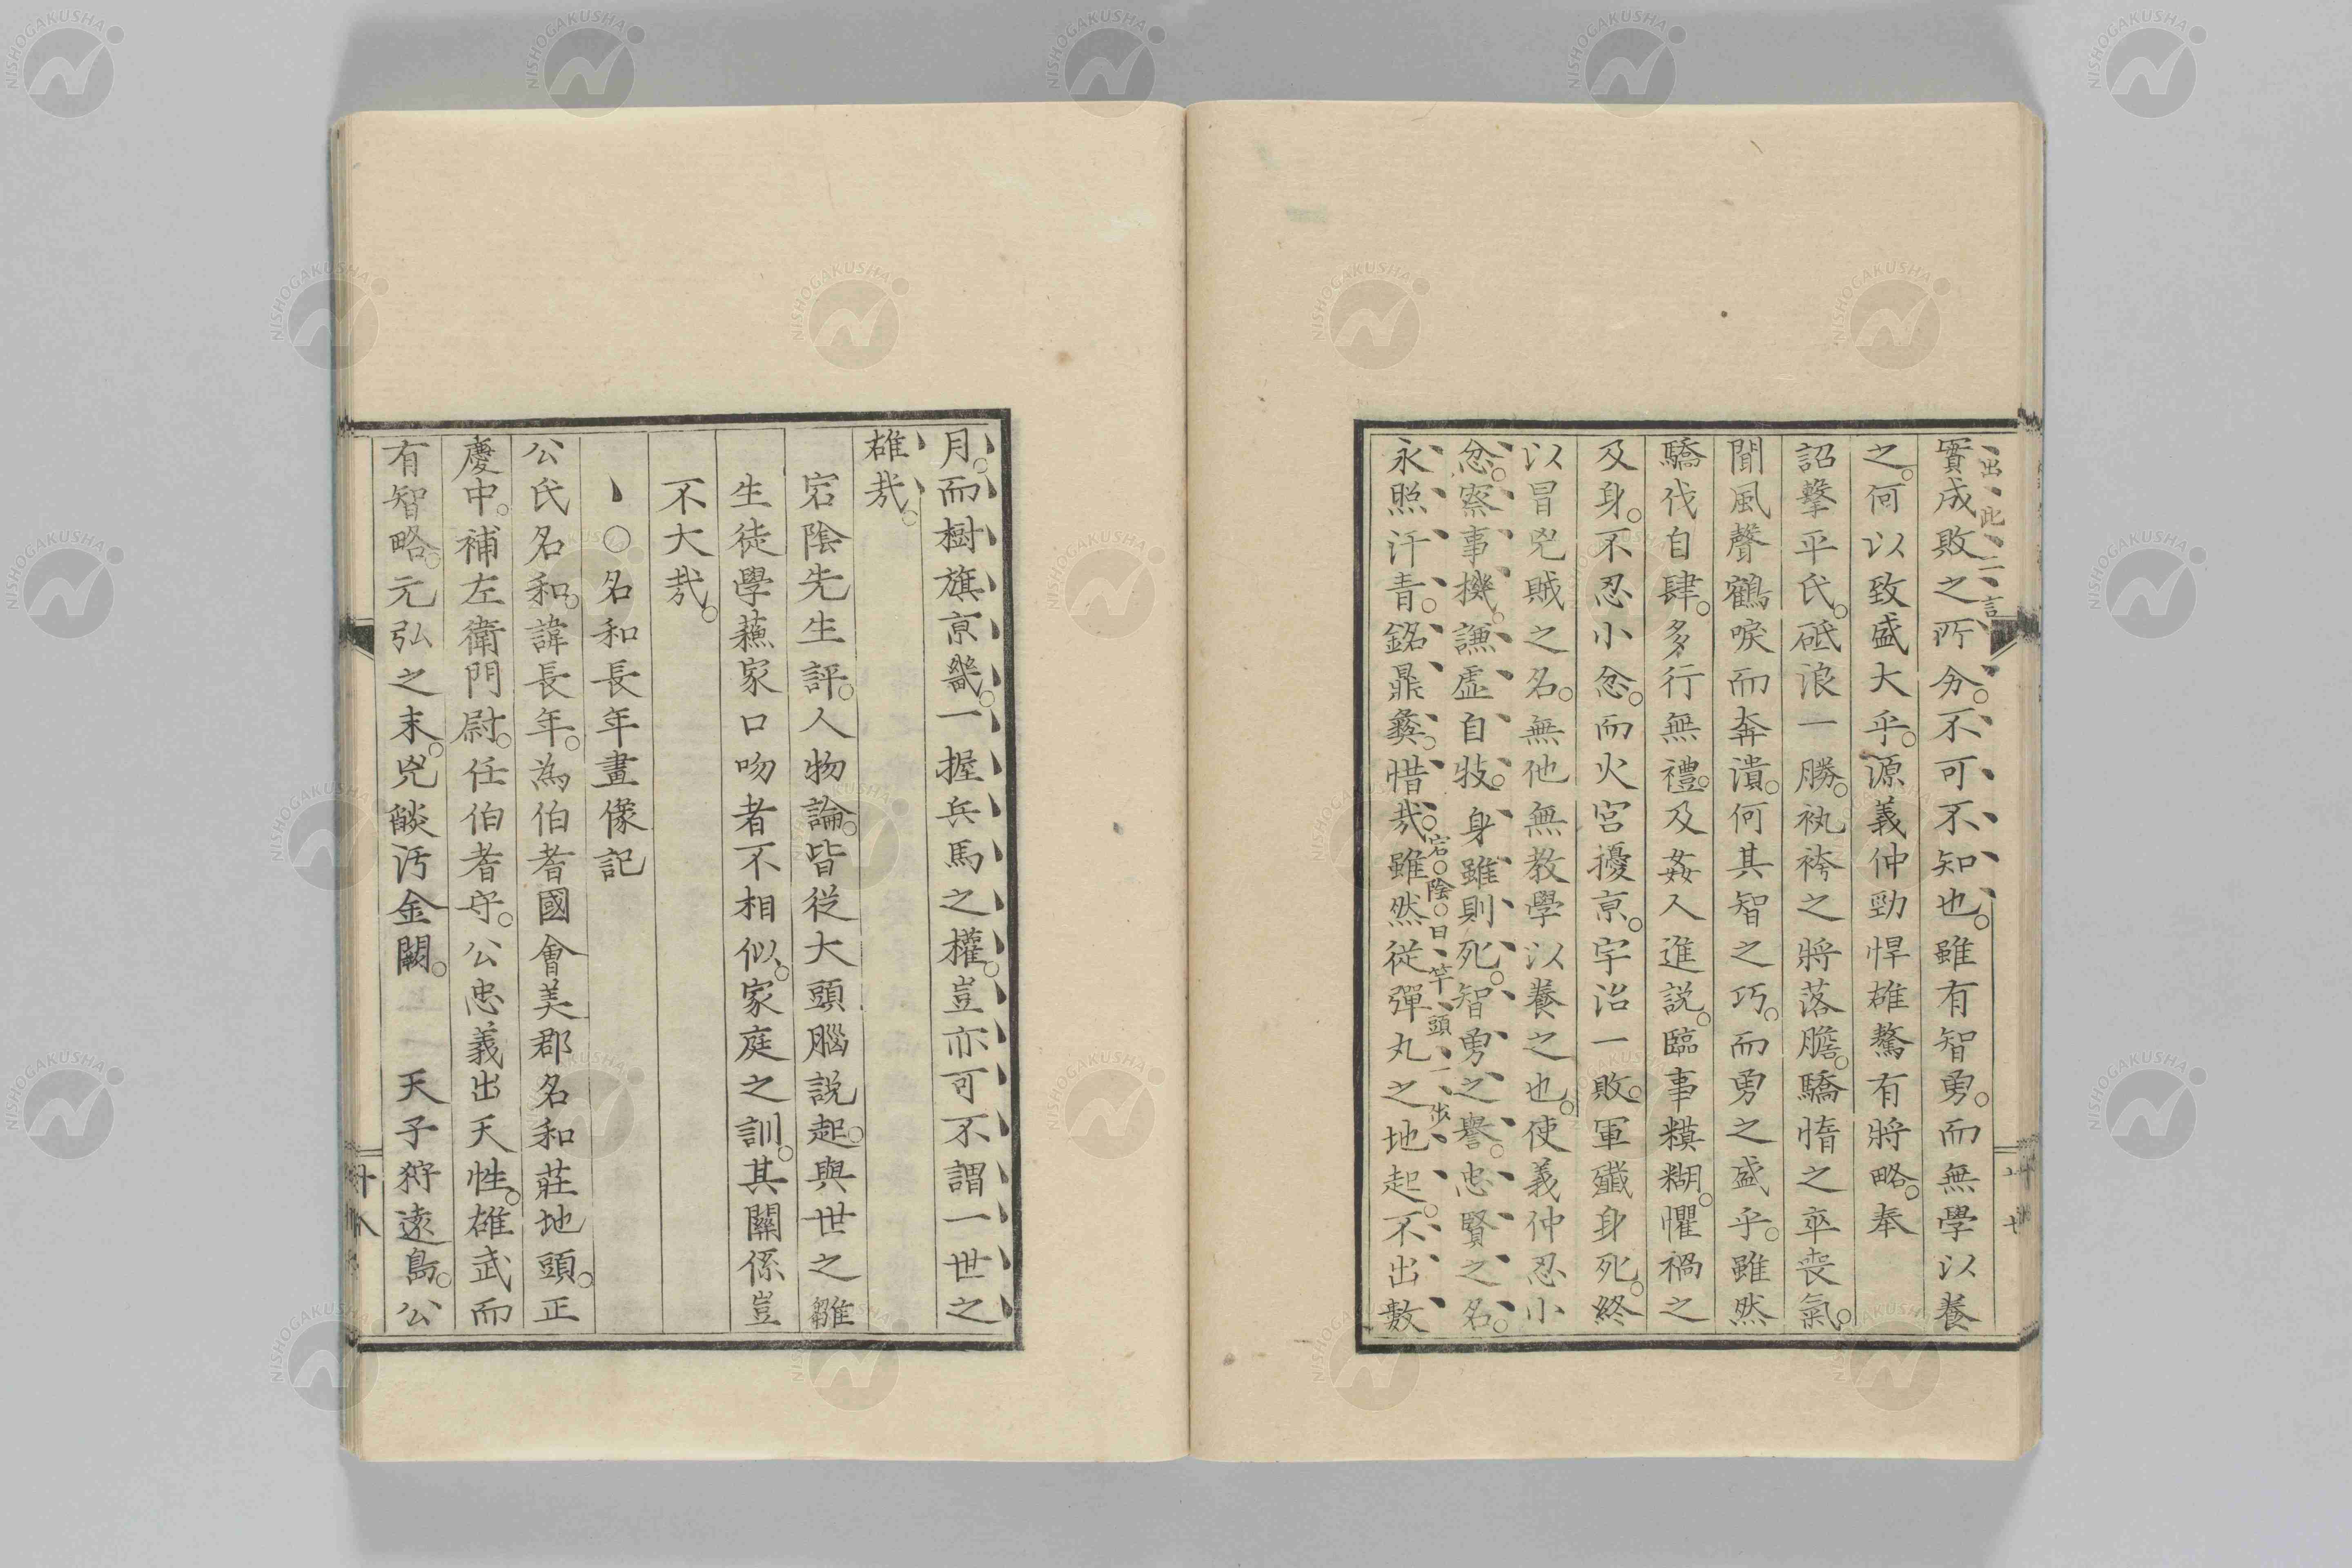 出此二言
實成敗之所分。不可不知也。雖有智勇。而無學以養
之。何以致盛大乎。源義仲勁悍雄驁有將略。奉
詔擊平氏。砥浪一勝。紈袴之將落膽。驕惰之卒喪氣。
聞風聲鶴唳而奔潰。何其智之巧。而勇之盛乎。雖然
驕伐自肆。多行無禮。及姦人進說。臨事糢糊。懼禍之
及身。不忍小忿。而火宮擾亰。宇治一敗。軍殲身死。終
以冒兇賊之名。無他無教學以養之也。使義仲忍小
忿。察事機。謙虛自牧。身雖則死。智勇之譽。忠賢之名。
永照汗青。銘鼎彝。惜哉。雖然從彈丸之地起。不出數
宕陰曰竿頭一步
月。而樹旗亰畿。一握兵馬之權。豈亦可不謂一世之
雄哉。
宕陰先生評。人物論。皆從大頭腦說起。與世之雛
生徒學蘓家口吻者不相似。家庭之訓。其關係豈
不大哉。
○名和長年畫像記
公氏名和。諱長年。為伯耆國會美郡名和莊地頭。正
慶中。補左衛門尉。任伯耆守。公忠義出天性。雄武而
有智略。元弘之末。兇燄汚金闕。 天子狩遠島。公
十七
十八
NISHOGAKUSHA